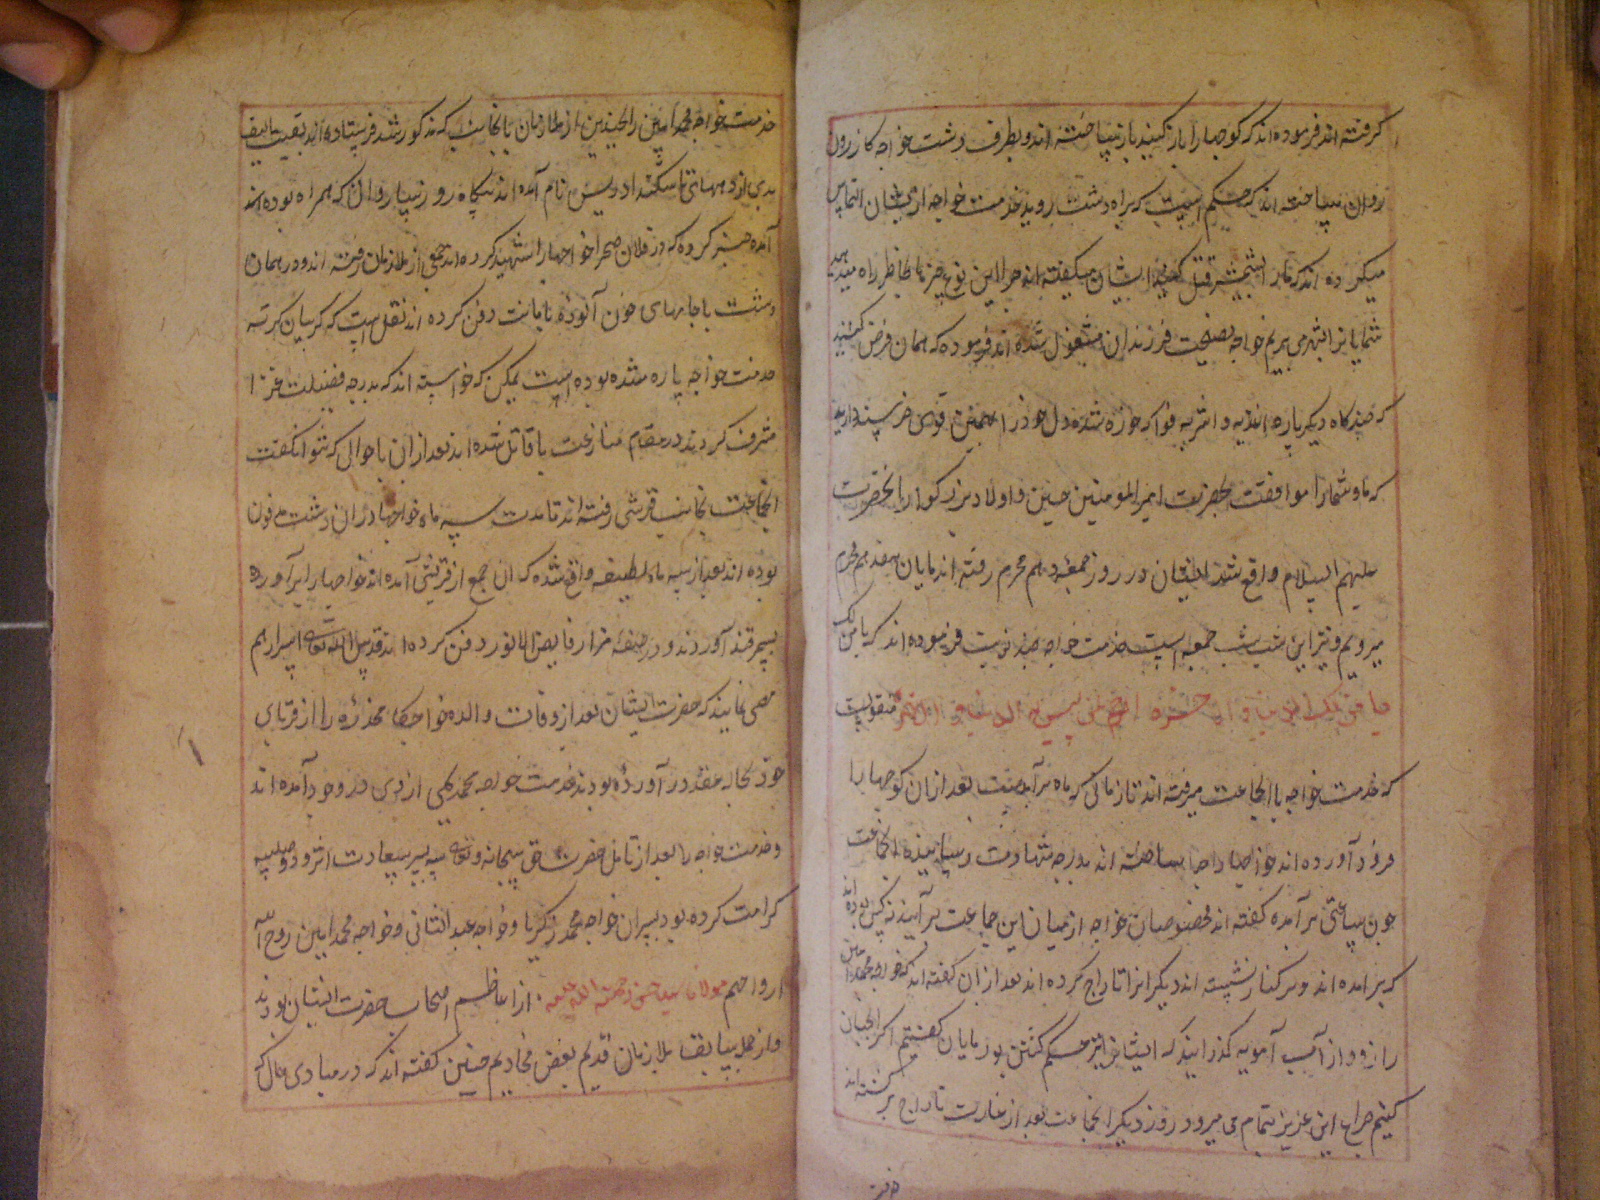 گرفته اند فرموده اند که کوچها را بار کنید بار نساخته اند و بطرف دشت خواجه کازرون
روان ساخته اند که حکم است که براه دشت روید خدمت خواجه ازیشان التماس
میکرده اند که مارا بشمشیر قتل کنید ایشان میگفته اند چرا این نوع چیز بخاطر راه میدهید
شمایانرا بشهر می بریم خواجه بنصیحت فرزندان مشغول شده اند فرموده که همان فرض کنید
که صد کاه دیگر پاره اغذیه و اشربه فواکه خورده شده دل خود را قوی خرسند دارید
که ما و شما را موافقت بحضرت امیر المومنین حسین و اولاد بزرگوار آنحضرت
علیهم السلام واقع شد ایشان در روز جمعه دهم محرم رفته اند مایان هفدهم محرم
میرویم و نیز این شب شب جمعه است خدمت خواجه فرموده اند که یا من لک
الدنیا و الاخرة ارحم من لیس له الدنیا و الاخرة منقولست
که خدمت خواجه با انجماعت میرفته اند تا زمانی که ماه برآمدست بعد ازان کوچها را
فرود آورده اند خواجها را جدا ساخته اند بدرجه شهادت رسانیده انجماعت
چون ساعتی برآمده گفته اند مخصوصان خواجه ازمیان این جماعت برآیند نه کس بوده اند
که برآمده اند و بر کنار نشسته اند دیگرانرا تاراج کرده اند بعد ازان گفته اند که خواجه محمد امین
را زود از آب آمویه گذرانید که ایشانرا نیز حکم کشتن بود مایان گفتیم اگر آنچنان
کنیم چراغ این عزیز تمام می میرود روز دیگر انجماعت بعد از غارت تاراج برگشته اند
خدمت
خدمت خواجه محمد امین را بچندین از ملازمان بآنجانب که مذکور شد فرستاده اند
بدی از دههای تاشکند ادریس نام آمده اند پگاه روز ساروانان که همراه بوده اند
آمده خبر کرده که در فلان صحرا خواجها را شهید کرده اند جمعی از ملازمان رفته اند و در همان
دشت با جامهای خون آلوده بامانت دفن کرده اند نقل است که گریبان کرته
خدمت خواجه پاره شده بوده است یمکن که خواسته اند که بدرجه فضیلت غزا
مشرف گردند در مقام منازعت با قاتل شده اند بعد ازان باحوالی که نتوان گفت
انجماعت بجانب قرشی رفته اند تا مدت سه ماه خواجها دران دشت مدفون
بوده اند بعد از سه ماه لطیفه واقع شده که آن جمع از قرشی آمده اند خواجها را برآورده
بسمرقند آوردند و در صفه مزار فایض الانور دفن کرده اند قدس الله تعالی اسرارهم
مخفی نماند که حضرت ایشان بعد از وفات والده خواجکا مخدره را از قربای
خود بحاله عقد در آورده بودند خدمت خواجه محمد یحیی از وی در وجود آمده اند
و خدمت خواجه را بعد از تاهل حضرت حق سبحانه و تعالی سه پسر سعادت اثر و دو صبیه
کرامت کرده بود پسران خواجه محمد زکریا و خواجه عبد الثانی و خواجه محمد امین روح الله
ارواحهم مولانا سید حسن رحمة الله علیه از اعاظم اصحاب حضرت ایشان بودند
و از جمله سابقان ملازمان قدیم بعض مخادیم چنین گفته اند که در مبادی حال که